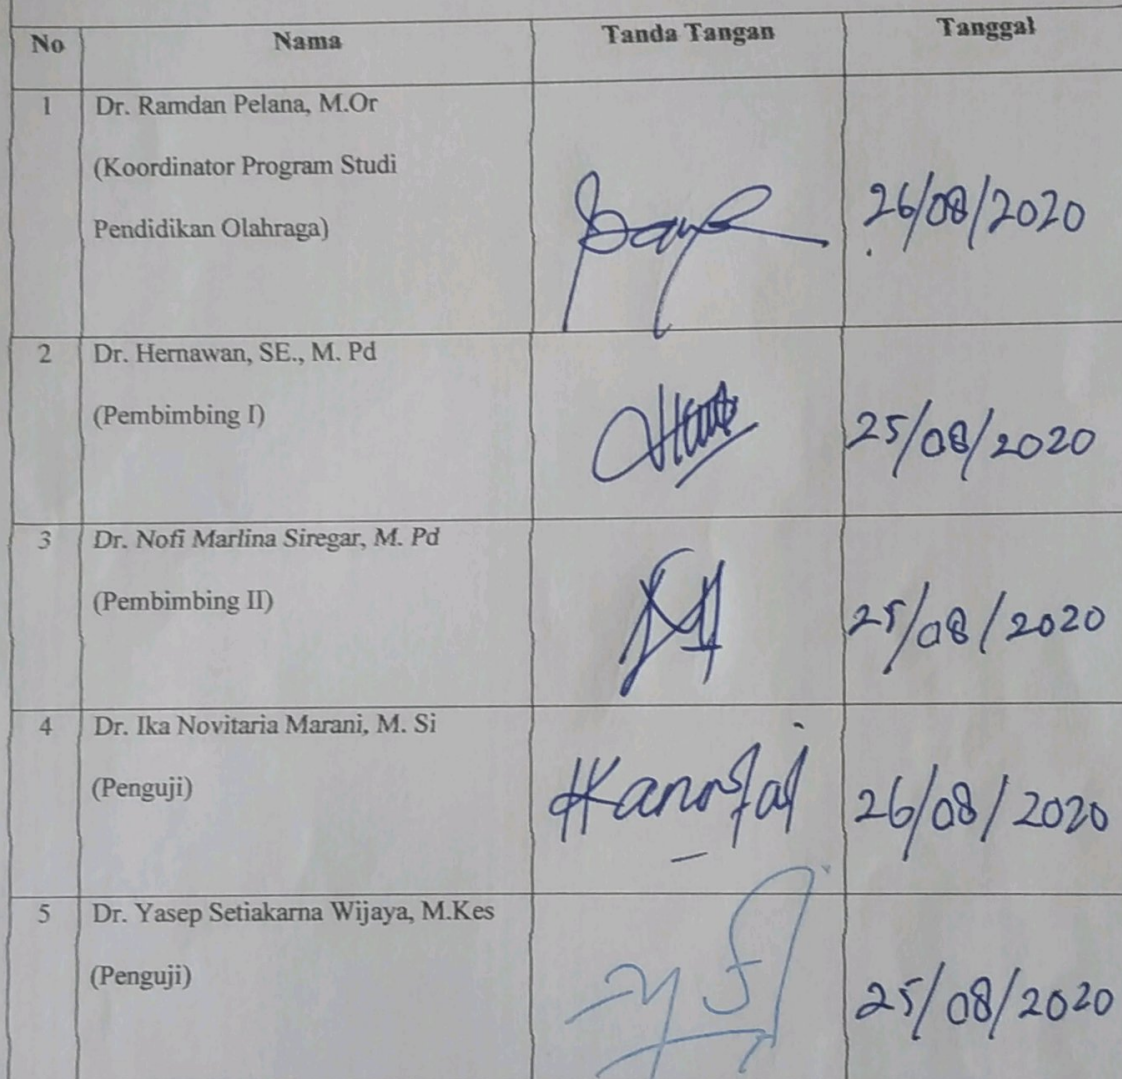 No Nama Tanda Tangan Tanggal
1 Dr. Ramdan Pelana, M.Or
(Koordinator Program Studi
Pendidikan Olahraga)
26/08/2020
2 Dr. Hernawan, SE., M. Pd
(Pembimbing I)
25/08/2020
3 Dr. Nofi Marlina Siregar, M. Pd
(Pembimbing II)
25/08/2020
4 Dr. Ika Novitaria Marani, M. Si
(Penguji)
26/08/2020
5 Dr. Yasep Setiakarna Wijaya, M.Kes
(Penguji)
25/08/2020